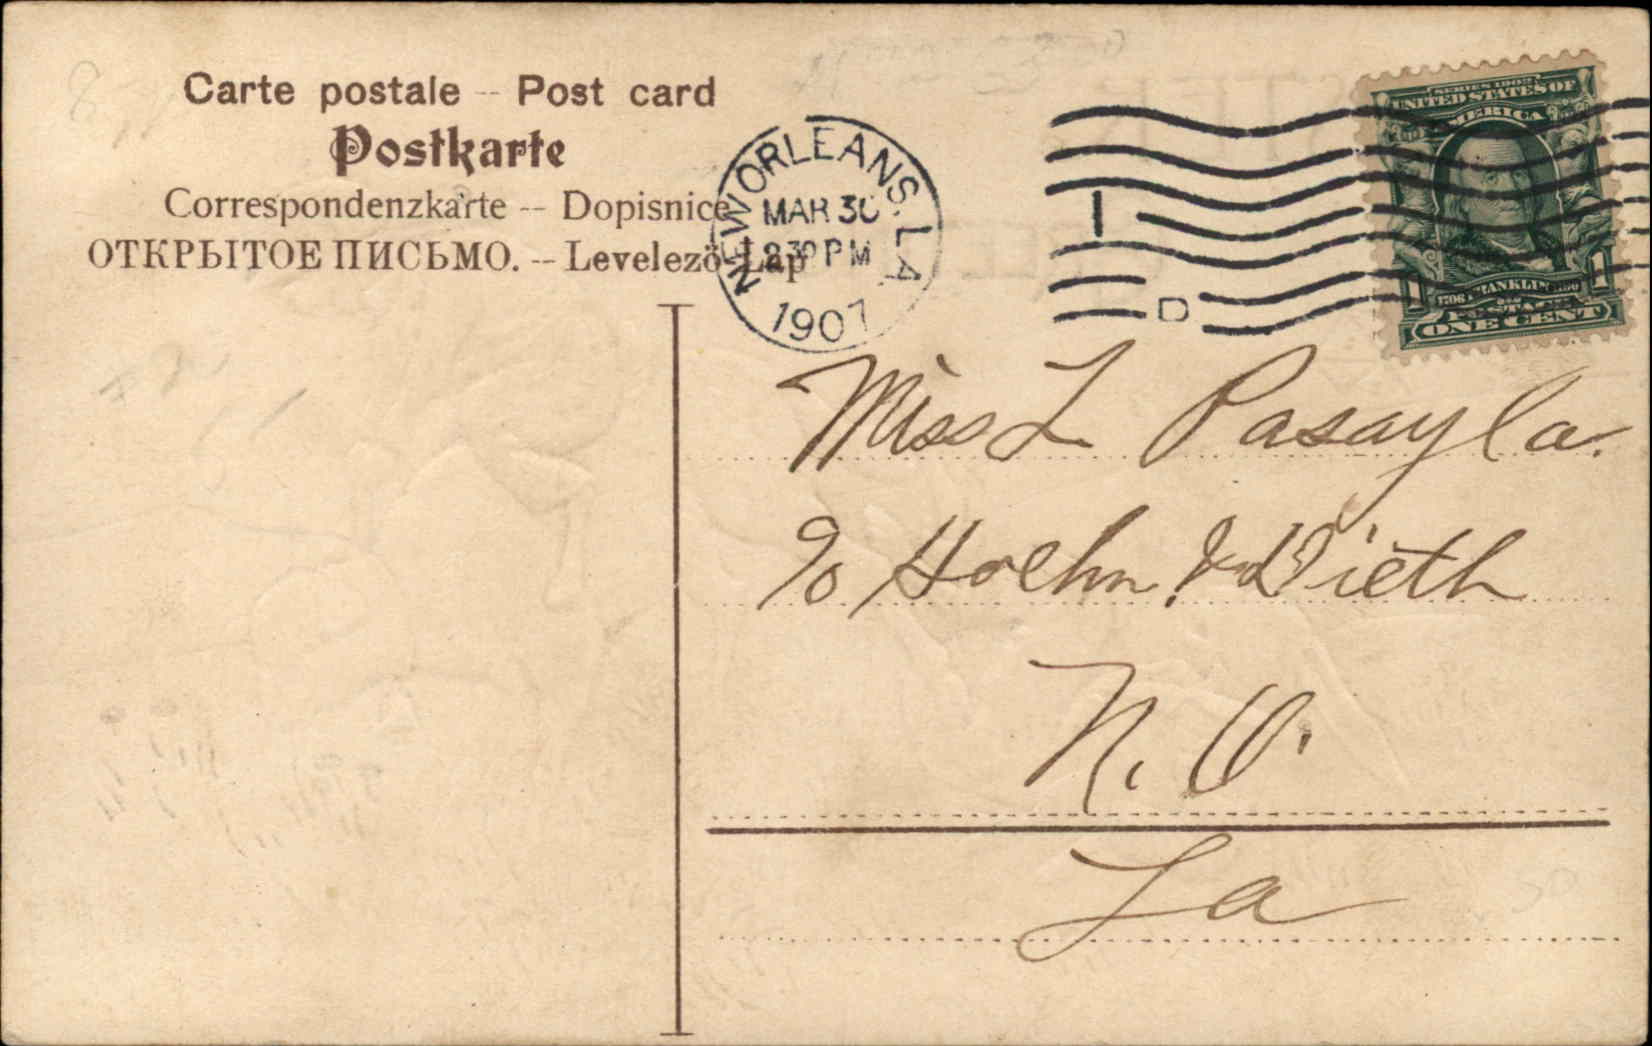 Carte postale -- Post card
Postkarte
Correspondenzkarte -- Dopisnice
ОТКРЫТОЕ ПИСЬМО. -- Levelező-Lap
NEW ORLEANS. LA
MAR 30
230 PM
1907
1
D
SERIES 1902
UNITED STATES OF
AMERICA
1706 FRANKLIN 1790
POSTAGE
1 1
ONE CENT
Miss L Pasayla.
c/o Hoehn & Dieth
N. O.
La